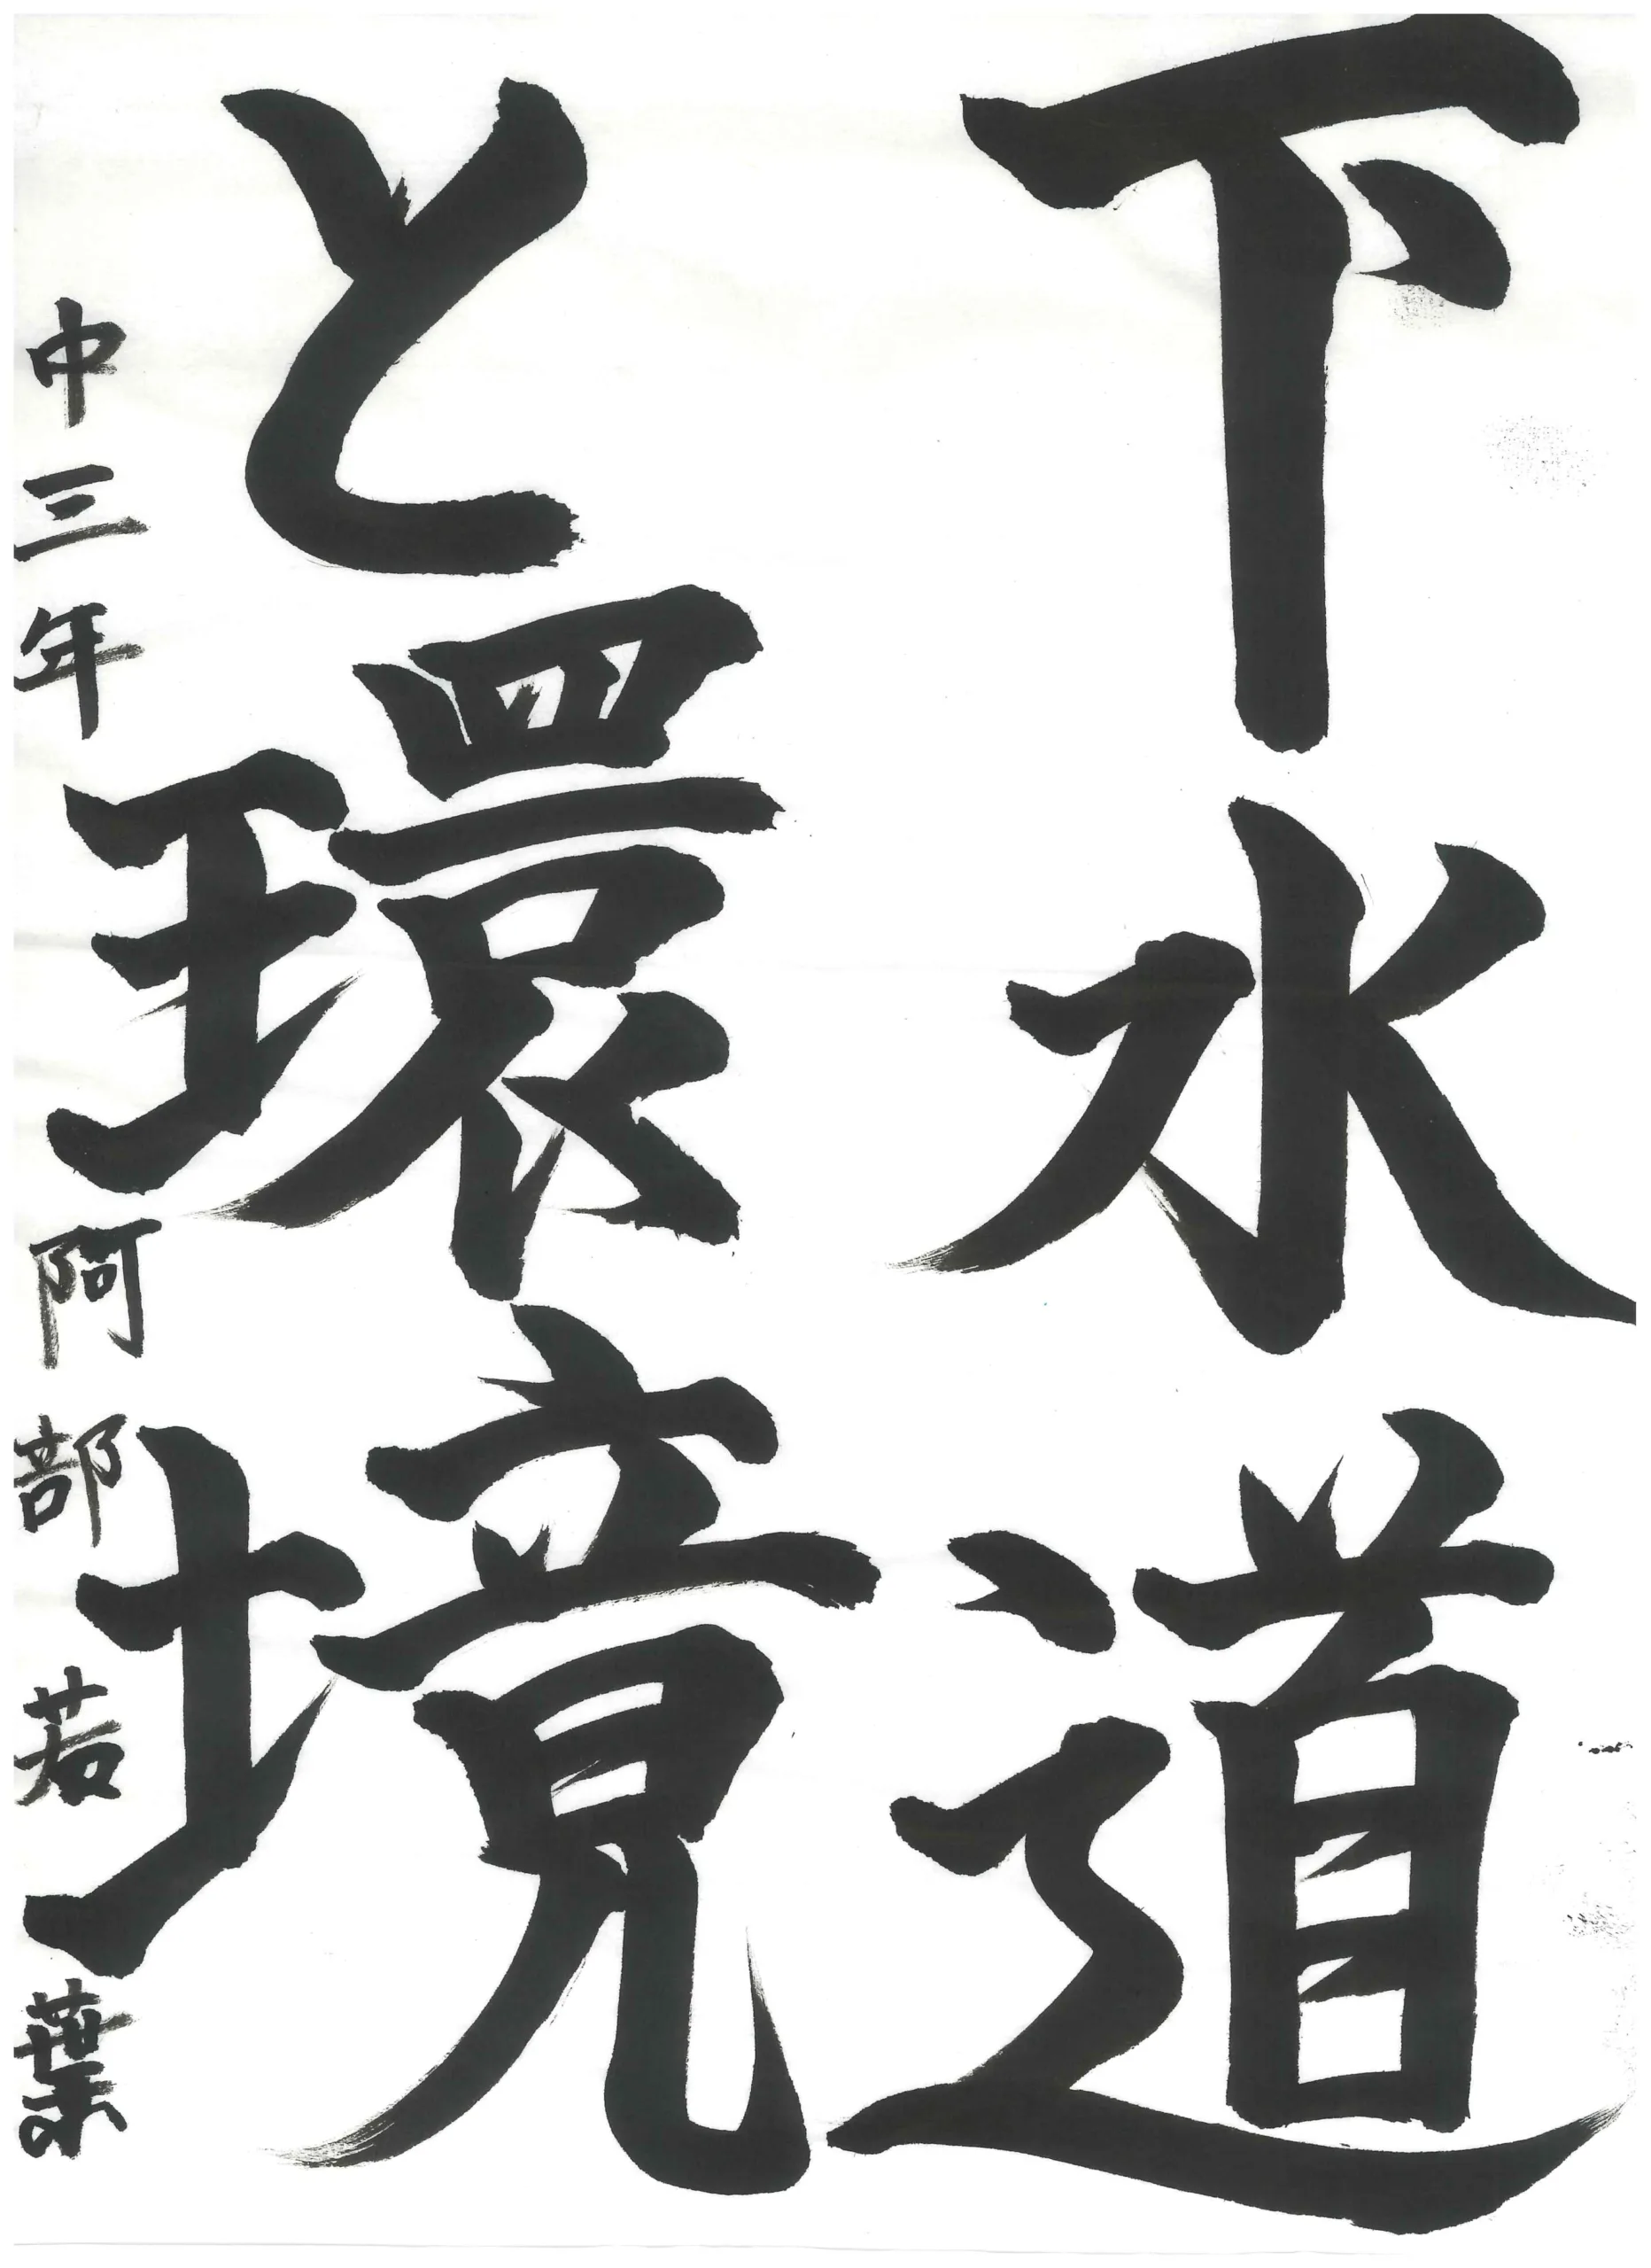 下水道
と環境
中三年 阿部若葉